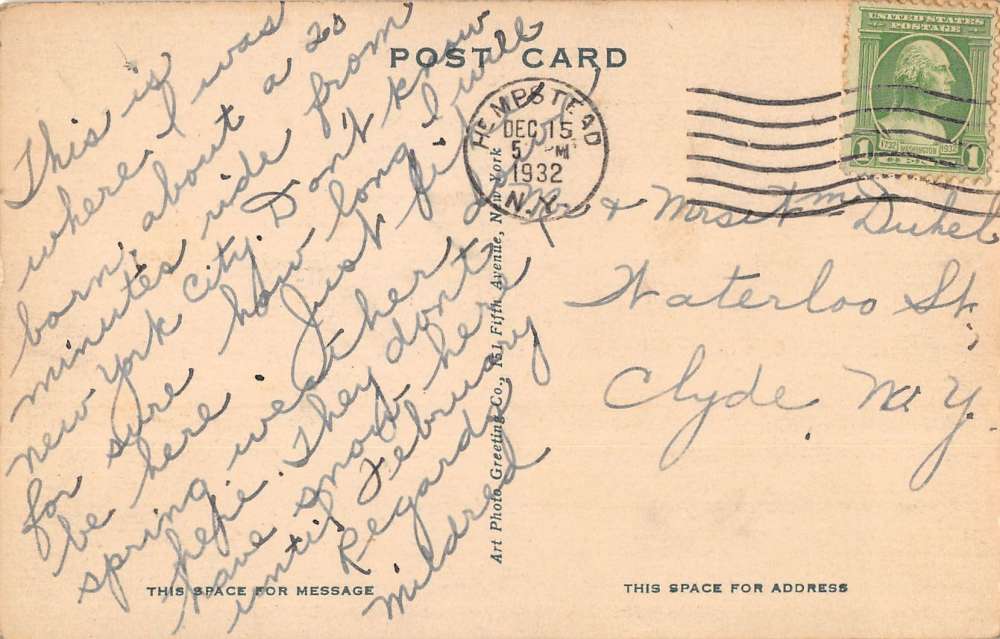 POST CARD
This is
where I was
born, about a 20
minutes ride from
new york City. Don't know
for sure how long I will
be here Just fine
spring weather
here. They dont
have snow here
until February
Regards
Mildred
THIS SPACE FOR MESSAGE
Art Photo Greeting Co., 151 Fifth Avenue, New York
HEMPSTEAD
DEC 15
5 PM
1932
N.Y.
UNITED STATES
POSTAGE
1732 WASHINGTON 1932
1 1
Mr & Mrs Wm Duhel
Waterloo St,
Clyde N. Y.
THIS SPACE FOR ADDRESS